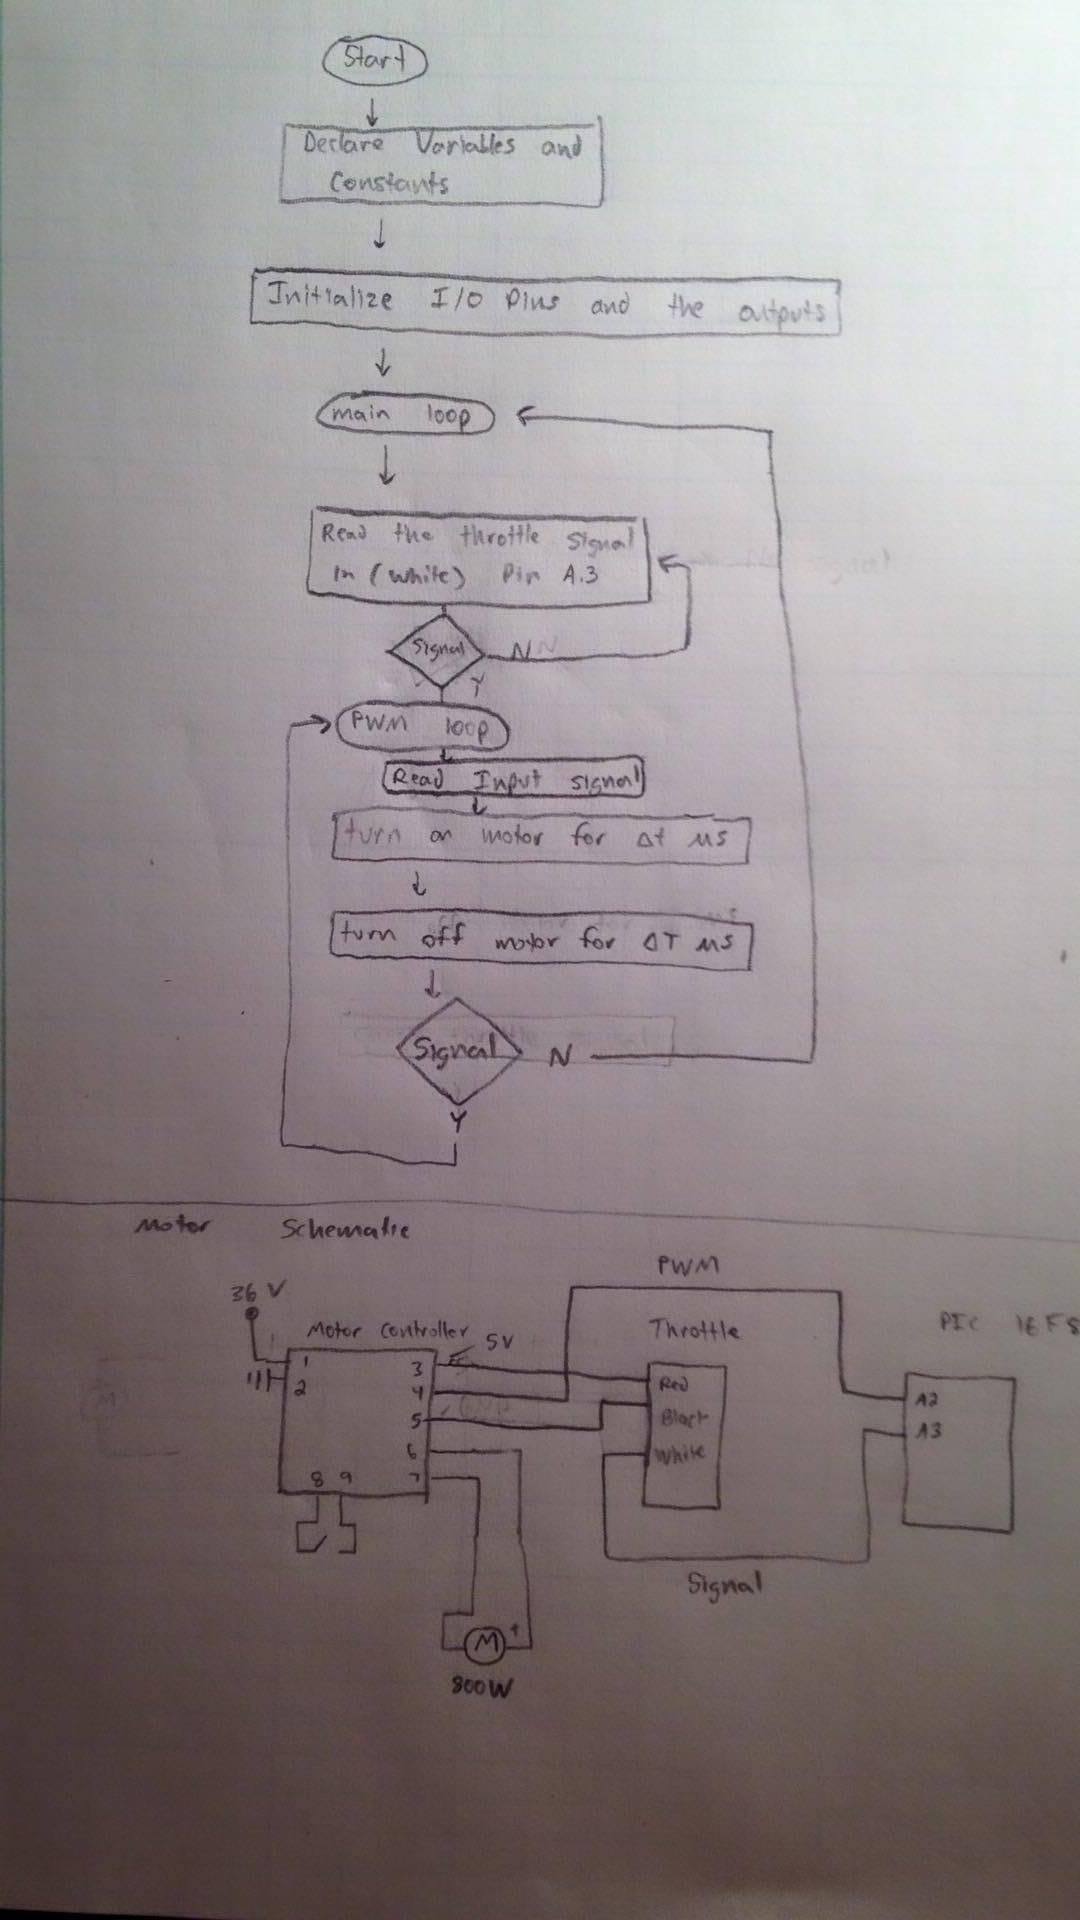 Start
Declare Variables and
Constants
Initialize I/O Pins and the outputs
main loop
Read the throttle signal
In (white) Pin A.3
Signal
N
Y
PWM loop
Read Input signal
turn on motor for Δt μs
turn off motor for ΔT μs
Signal
N
Y
Motor Schematic
PWM
36 V
Motor Controller
5V
Throttle
PIC 16F8
1
2
3
4
5
6
7
8 9
Red
Black
White
A2
A3
Signal
M
+
800W